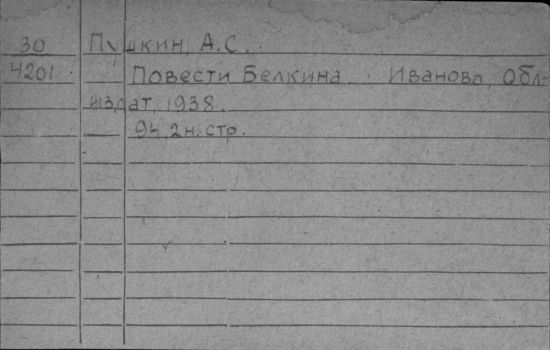 30 Пушкин, А.С.
4201 Повести Белкина. Иваново, Обл-
издат, 1938.
94, 2 н. стр.